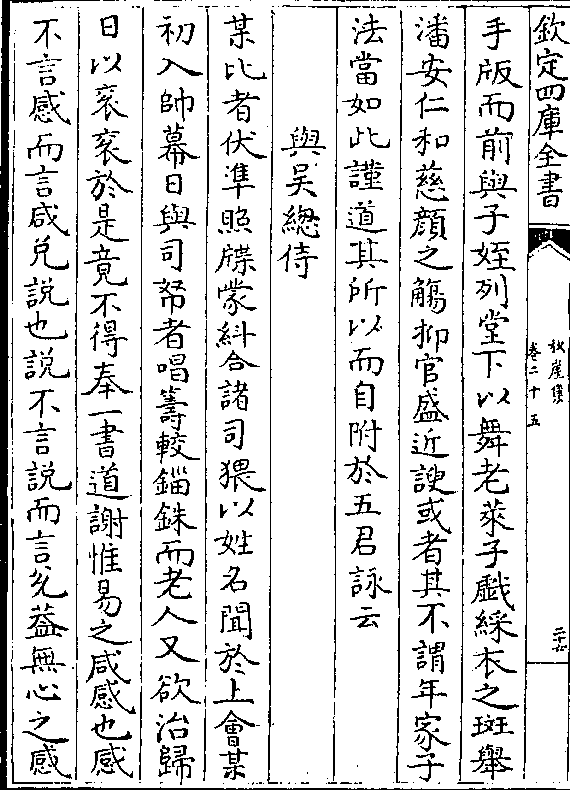 欽定四庫全書
秋崖集
卷二十五
手版而前與子姪列堂下以舞老萊子戲綵衣之斑舉
潘安仁和慈顔之觴抑官盛近諛或者其不謂年家子
法當如此謹道其所以而自附於五君詠云
與吴總侍
某比者伏準照牒蒙糾合諸司猥以姓名聞於上會某
初入帥幕日與司帑者唱籌較錙銖而老人又欲治歸
日以衮衮於是竟不得奉一書道謝惟易之咸感也感
不言感而言咸兊說也說不言說而言兊葢無心之感